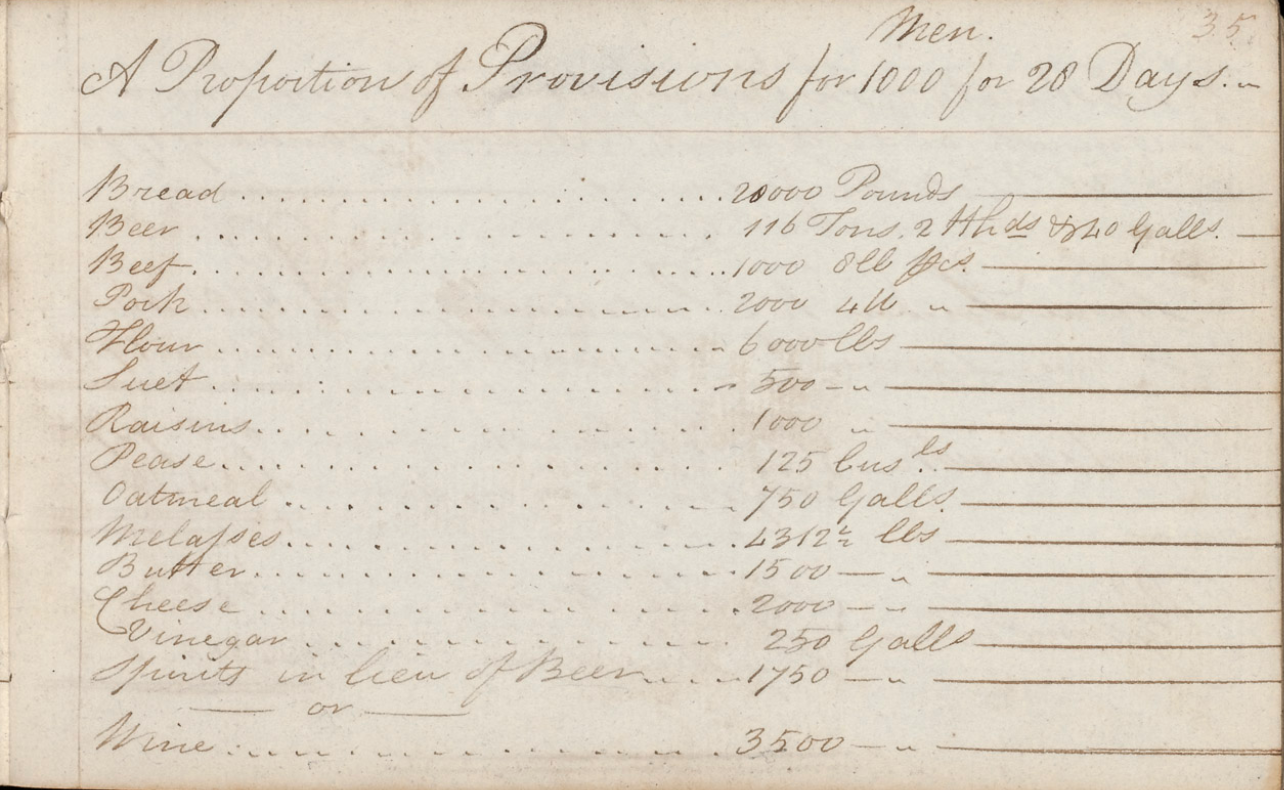 35
Men.
A Proportion of Provisions for 1000 for 28 Days. "
Bread . . . . . . . . . . . . . . . . . . . . 28000 Pounds
Beer . . . . . . . . . . . . . . . . . . . . 116 Tons. 2 Hhds & 40 Galls.
Beef . . . . . . . . . . . . . . . . . . . . 1000 8lb pcs.
Pork . . . . . . . . . . . . . . . . . . . . 2000 4lb "
Flour . . . . . . . . . . . . . . . . . . . . 6000 lbs
Suet . . . . . . . . . . . . . . . . . . . . 500 — "
Raisins . . . . . . . . . . . . . . . . . . . . 1000 "
Pease . . . . . . . . . . . . . . . . . . . . 125 busls
Oatmeal . . . . . . . . . . . . . . . . . . . . 750 Galls.
Melasses . . . . . . . . . . . . . . . . . . . . 4312½ lbs
Butter . . . . . . . . . . . . . . . . . . . . 1500 — "
Cheese . . . . . . . . . . . . . . . . . . . . 2000 — "
Vinegar . . . . . . . . . . . . . . . . . . . . 250 Galls
Spirits in lieu of Beer . . . . 1750 — "
— or —
Wine . . . . . . . . . . . . . . . . . . . . 3500 — "